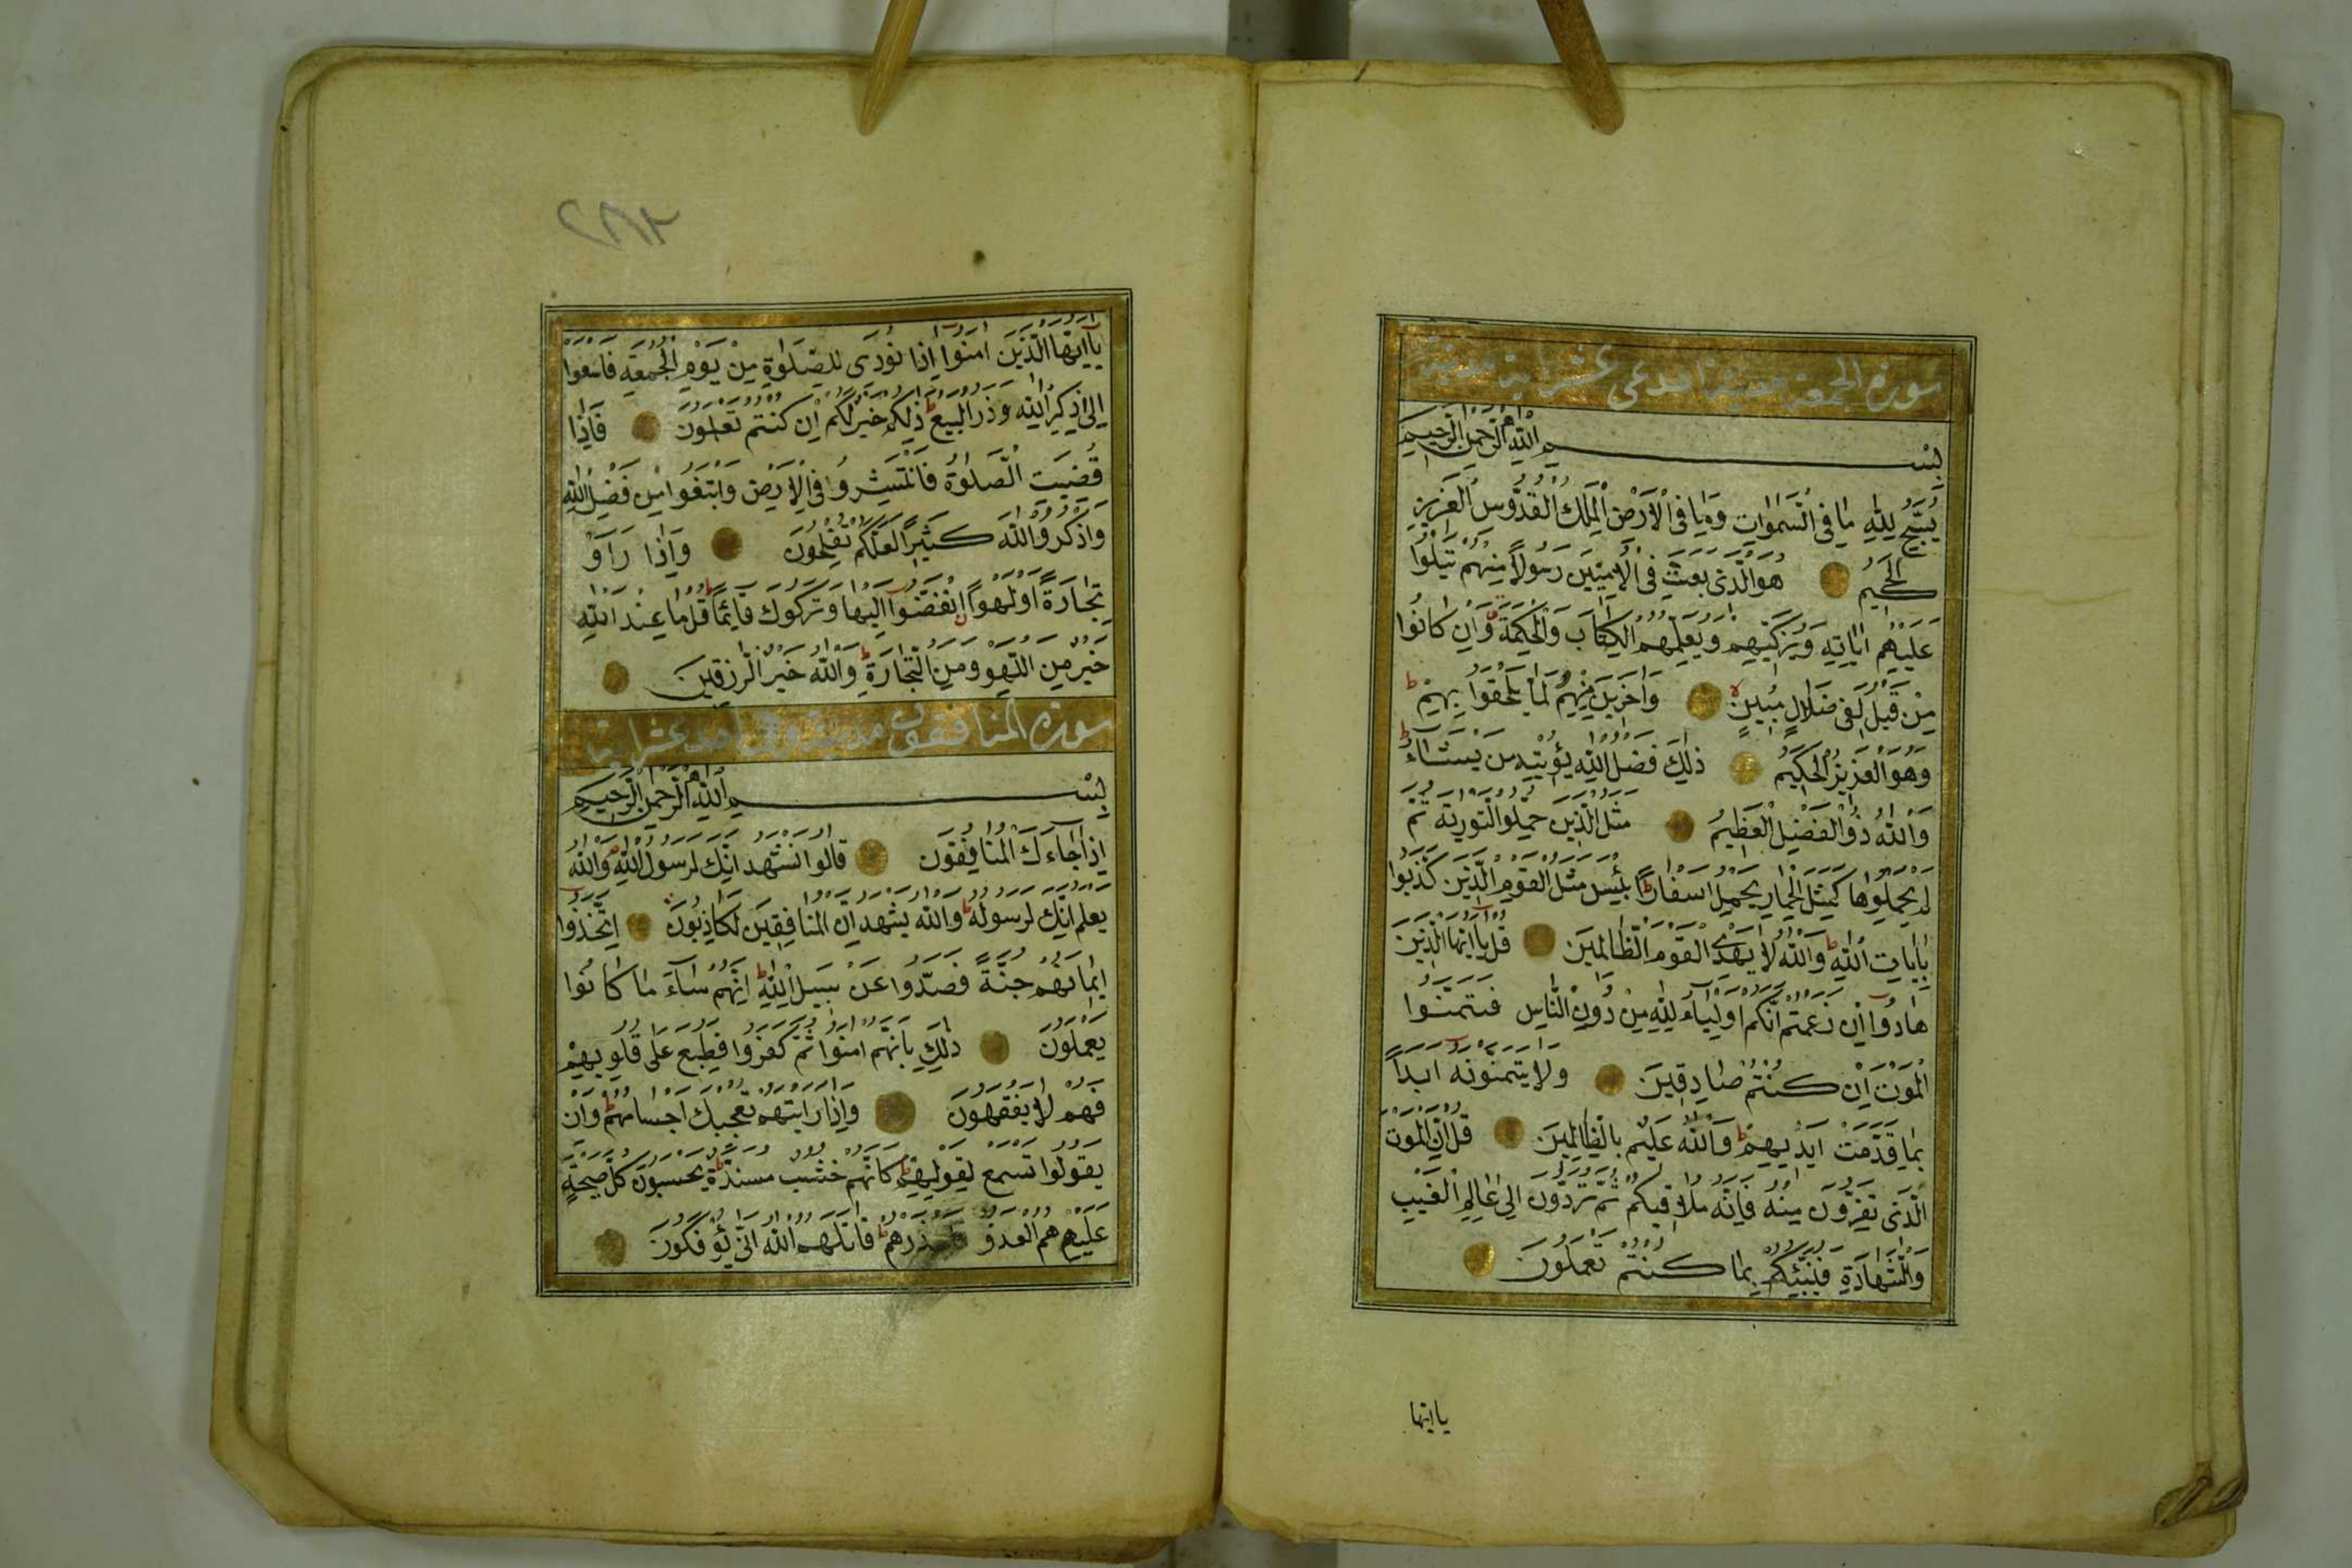 سورة الجمعة مدينة احدى عشر اية مدنية
بسم الله الرحمن الرحيم
يُسَبِّحُ لِلّٰهِ مَا فِى السَّمٰوَاتِ وَمَا فِى الْاَرْضِ الْمَلِكِ الْقُدُّوسِ الْعَزِيزِ
الْحَكِيمُ هُوَ الَّذِى بَعَثَ فِى الْاُمِّيّٖنَ رَسُولًا مِنْهُمْ يَتْلُوا
عَلَيْهِمْ اٰيَاتِهِ وَيُزَكِّيهِمْ وَيُعَلِّمُهُمُ الْكِتَابَ وَالْحِكْمَةَ وَاِنْ كَانُوا
مِنْ قَبْلُ لَفِى ضَلَالٍ مُبِينٍ وَاٰخَرِينَ مِنْهُمْ لَمَّا يَلْحَقُوا بِهِمْ
وَهُوَ الْعَزِيزُ الْحَكِيمُ ذٰلِكَ فَضْلُ اللّٰهِ يُؤْتِيهِ مَنْ يَشَاءُ
وَاللّٰهُ ذُو الْفَضْلِ الْعَظِيمُ مَثَلُ الَّذِينَ حُمِّلُوا التَّوْرٰيةَ ثُمَّ
لَمْ يَحْمِلُوهَا كَمَثَلِ الْحِمَارِ يَحْمِلُ اَسْفَارًا بِئْسَ مَثَلُ الْقَوْمِ الَّذِينَ كَذَّبُوا
بِاٰيَاتِ اللّٰهِ وَاللّٰهُ لَا يَهْدِى الْقَوْمَ الظَّالِمِينَ قُلْ يَا اَيُّهَا الَّذِينَ
هَادُوا اِنْ زَعَمْتُمْ اَنَّكُمْ اَوْلِيَاءُ لِلّٰهِ مِنْ دُونِ النَّاسِ فَتَمَنَّوُا
الْمَوْتَ اِنْ كُنْتُمْ صَادِقِينَ وَلَا يَتَمَنَّوْنَهُ اَبَدًا
بِمَا قَدَّمَتْ اَيْدِيهِمْ وَاللّٰهُ عَلِيمٌ بِالظَّالِمِينَ قُلْ اِنَّ الْمَوْتَ
الَّذِى تَفِرُّونَ مِنْهُ فَاِنَّهُ مُلَاقِيكُمْ ثُمَّ تُرَدُّونَ اِلٰى عَالِمِ الْغَيْبِ
وَالشَّهَادَةِ فَيُنَبِّئُكُمْ بِمَا كُنْتُمْ تَعْمَلُونَ
يا ايها
٢٨٢
يَا اَيُّهَا الَّذِينَ اٰمَنُوا اِذَا نُودِىَ لِلصَّلٰوةِ مِنْ يَوْمِ الْجُمُعَةِ فَاسْعَوْا
اِلٰى ذِكْرِ اللّٰهِ وَذَرُ الْبَيْعَ ذٰلِكُمْ خَيْرٌ لَكُمْ اِنْ كُنْتُمْ تَعْلَمُونَ فَاِذَا
قُضِيَتِ الصَّلٰوةُ فَانْتَشِرُوا فِى الْاَرْضِ وَابْتَغُوا مِنْ فَضْلِ اللّٰهِ
وَاذْكُرُوا اللّٰهَ كَثِيرًا لَعَلَّكُمْ تُفْلِحُونَ وَاِذَا رَاَوْ
تِجَارَةً اَوْ لَهْوًا انْفَضُّوا اِلَيْهَا وَتَرَكُوكَ قَائِمًا قُلْ مَا عِنْدَ اللّٰهِ
خَيْرٌ مِنَ اللَّهْوِ وَمِنَ التِّجَارَةِ وَاللّٰهُ خَيْرُ الرّٰزِقِينَ
سورة المنافقون مدينة وهى احد عشر اية
بسم الله الرحمن الرحيم
اِذَا جَاءَكَ الْمُنَافِقُونَ قَالُوا نَشْهَدُ اِنَّكَ لَرَسُولُ اللّٰهِ وَاللّٰهُ
يَعْلَمُ اِنَّكَ لَرَسُولُهُ وَاللّٰهُ يَشْهَدُ اِنَّ الْمُنَافِقِينَ لَكَاذِبُونَ اِتَّخَذُوا
اَيْمَانَهُمْ جُنَّةً فَصَدُّوا عَنْ سَبِيلِ اللّٰهِ اِنَّهُمْ سَاءَ مَا كَانُوا
يَعْمَلُونَ ذٰلِكَ بِاَنَّهُمْ اٰمَنُوا ثُمَّ كَفَرُوا فَطُبِعَ عَلٰى قُلُوبِهِمْ
فَهُمْ لَا يَفْقَهُونَ وَاِذَا رَاَيْتَهُمْ تُعْجِبُكَ اَجْسَامُهُمْ وَاِنْ
يَقُولُوا تَسْمَعْ لِقَوْلِهِمْ كَاَنَّهُمْ خُشُبٌ مُسَنَّدَةٌ يَحْسَبُونَ كُلَّ صَيْحَةٍ
عَلَيْهِمْ هُمُ الْعَدُوُّ فَاحْذَرْهُمْ قَاتَلَهُمُ اللّٰهُ اَنّٰى يُؤْفَكُونَ